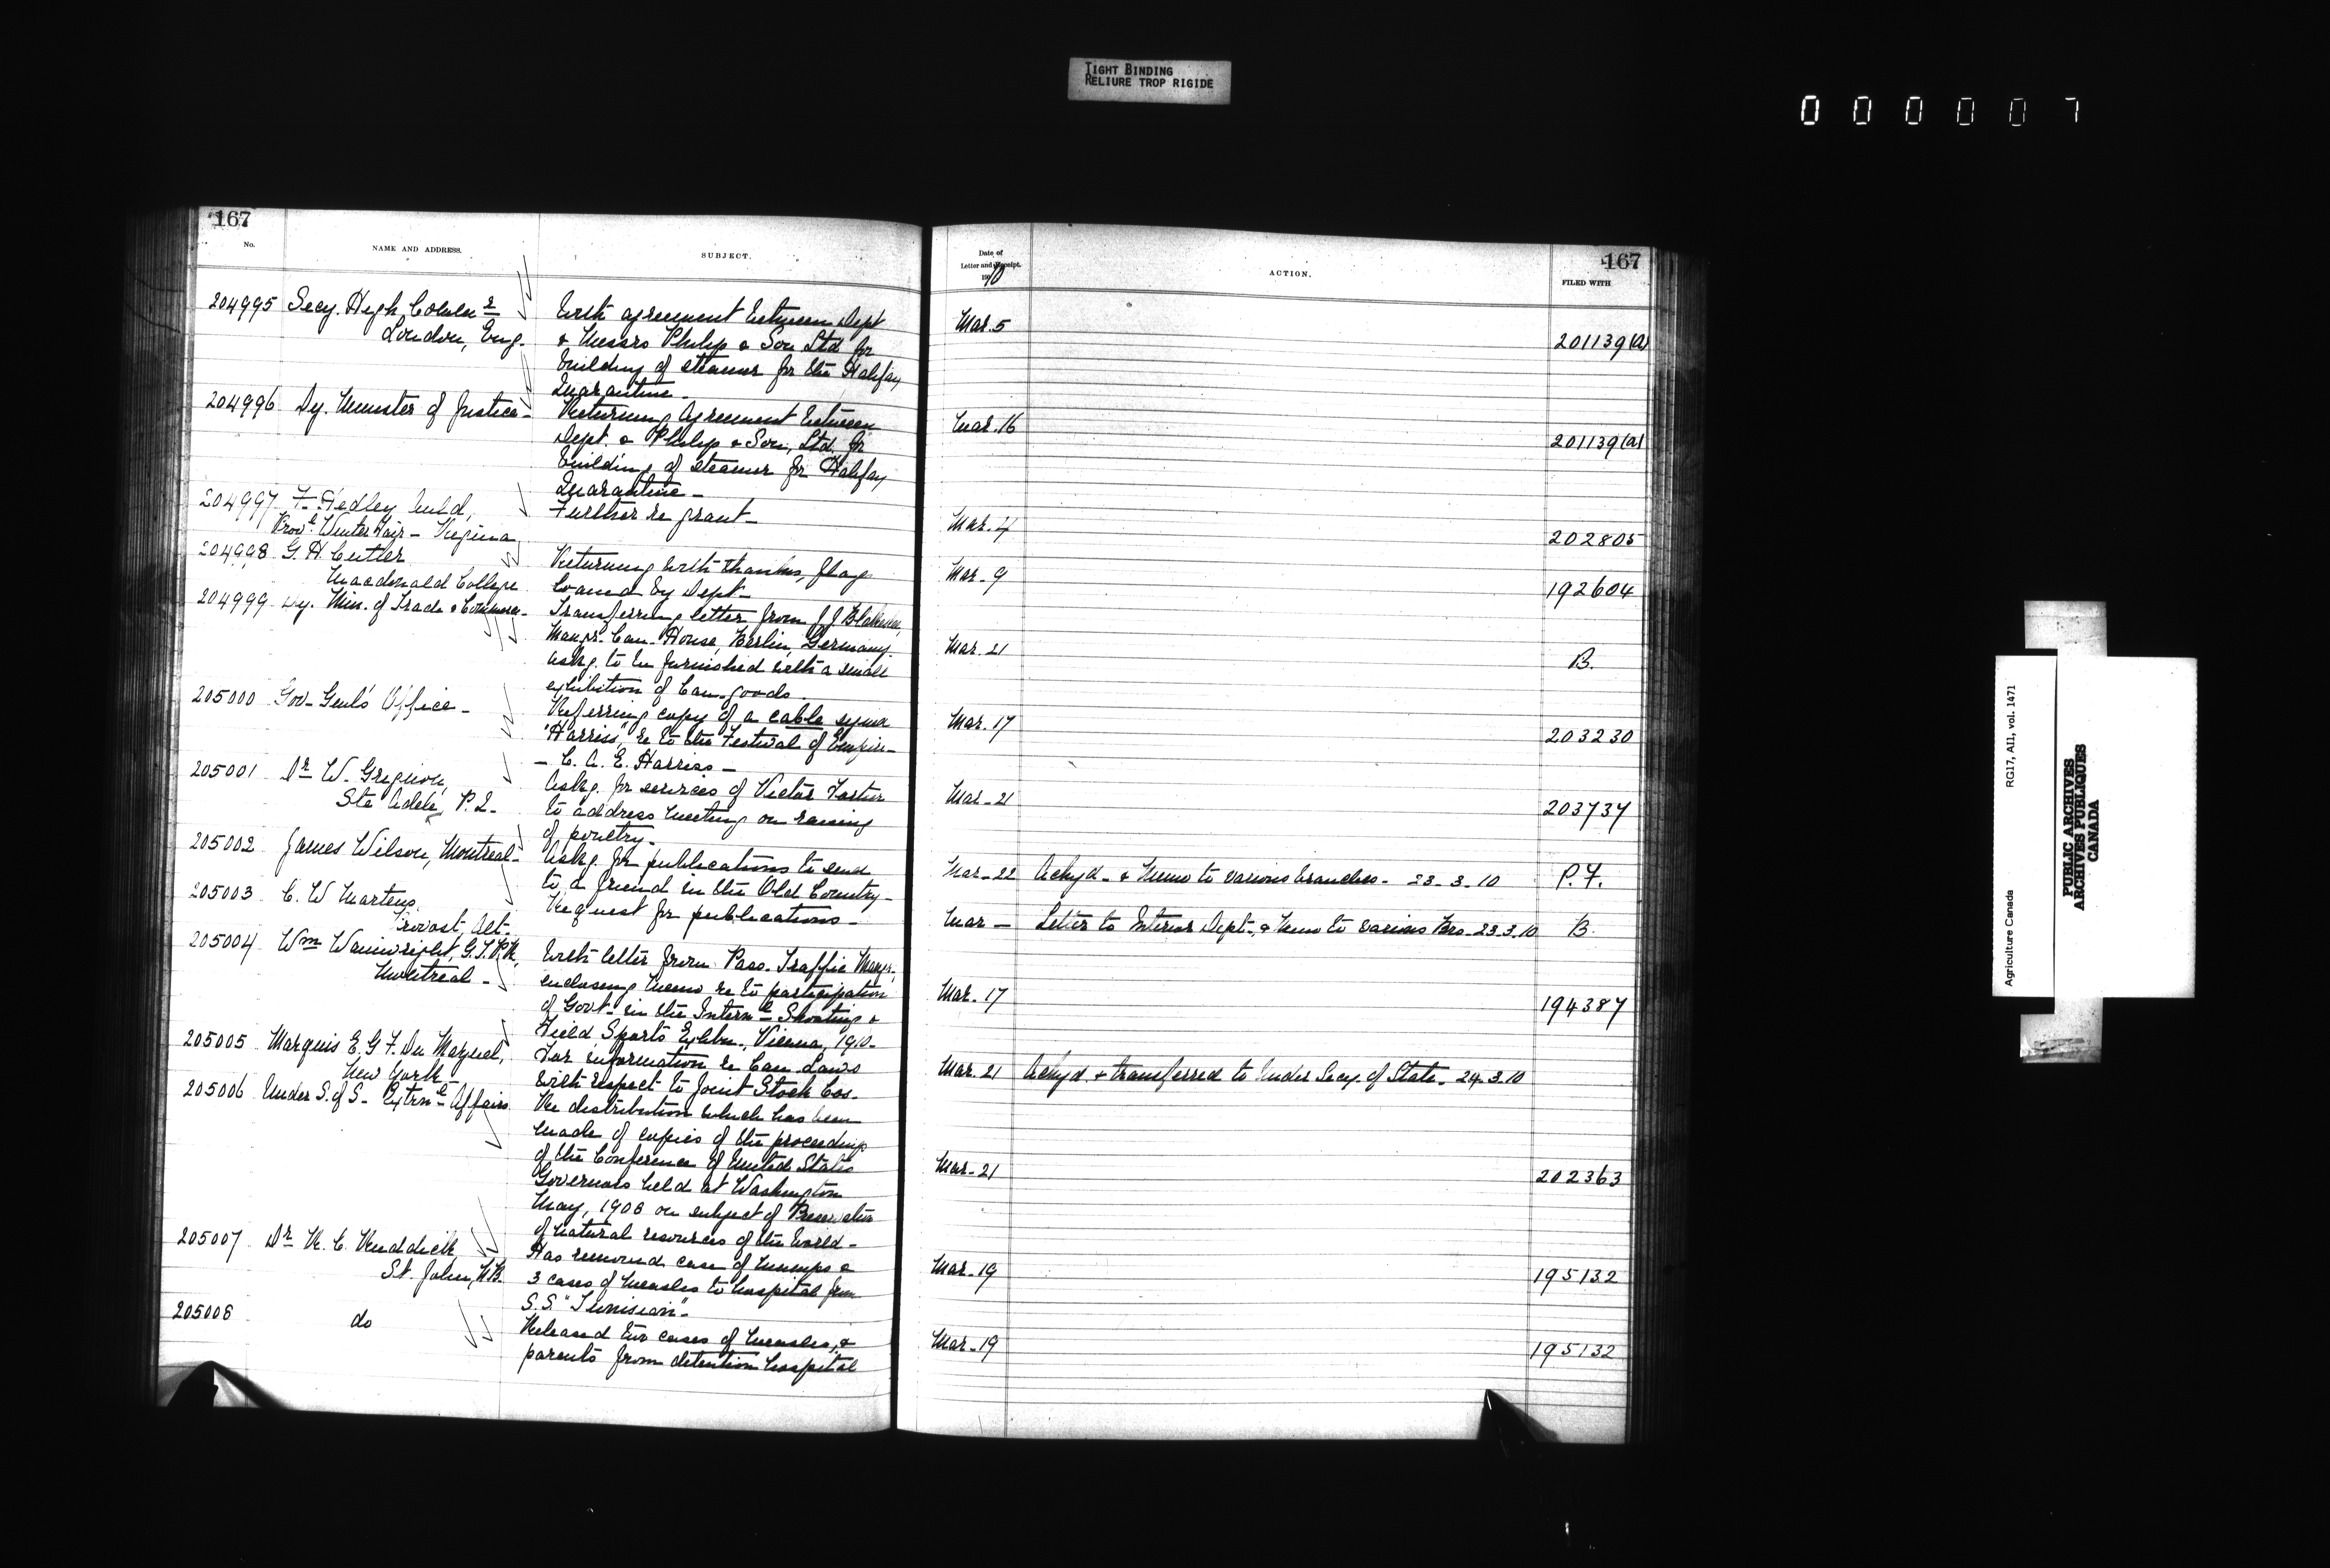 TIGHT BINDING
RELIURE TROP RIGIDE
000007
167
No.
NAME AND ADDRESS.
SUBJECT.
204995 Secy. High Commr
London, Eng.
With agreement between Dept
& Messrs Philip & Son Ltd for
building of steamer for the Halifax
Quarantine -
204996 Dy. Minister of Justice -
Returning Agreement between
Dept. & Philip & Son, Ltd, for
building of steamer for Halifax
Quarantine -
204997 F. Hedley Auld,
Provl Winter Fair - Regina
Further re grant -
204998 G. H. Cutler
Macdonald College
Returning with thanks, flags
loaned by Dept -
204999 Dy. Min. of Trade & Commerce -
Transferring letter from J J
Mangr. Can. House, Berlin, Germany
askg. to be furnished with a small
exhibition of Can. goods.
205000 Gov. Genl's Office -
Referring copy of a cable signed
"Harriss", re to the Festival of Empire -
- C. A. E. Harriss -
205001 Dr W. Grignon,
Ste Adele, P.Q.
Askg. for services of Victor Fortier
to address meeting on raising
of poultry -
205002 James Wilson, Montreal -
Askg. for publications to send
to a friend in the Old Country -
205003 C. W Martens
Provost, Alt.
Request for publications -
205004 Wm Wainwright, G.T.P.R,
Montreal -
With letter from Pass. Traffic Mangr.,
enclosing memo re to participation
of Govt - in the Internl Shooting &
Field Sports Exhbn., Vienna, 1910 -
205005 Marquis E. G. F. Du
New York -
For information re Can. Laws
with respect to Joint Stock Cos -
205006 Under S. of S - Extrnl Affairs
Re distribution which has been
made of copies of the proceedings
of the Conference of United States
Governors held at Washington
May, 1908 on subject of Preservation
of natural resources of the World -
205007 Dr R. C. Ruddick
St. John, N.B.
Has removed case of mumps &
3 cases of measles to hospital from
S.S. "Tunisian" -
205008 do
Released two cases of measles, &
parents from detention hospital
167
Date of
Letter and Receipt.
1910
ACTION.
FILED WITH
Mar. 5 201139(a)
Mar. 16 201139(a)
Mar. 4 202805
Mar. 9 192604
Mar. 21 B.
Mar. 17 203230
Mar. 21 203737
Mar. 22 Ackgd - & Memo to various branches - 23.3.10 P.F.
Mar - Letter to Interior Dept., & Memo to various Brs - 23.3.10 B.
Mar. 17 194387
Mar. 21 Ackgd. & transferred to Under Secy. of State. 24.3.10
Mar. 21 202363
Mar. 19 195132
Mar. 19 195132
Agriculture Canada RG17, AII, vol. 1471
PUBLIC ARCHIVES
ARCHIVES PUBLIQUES
CANADA